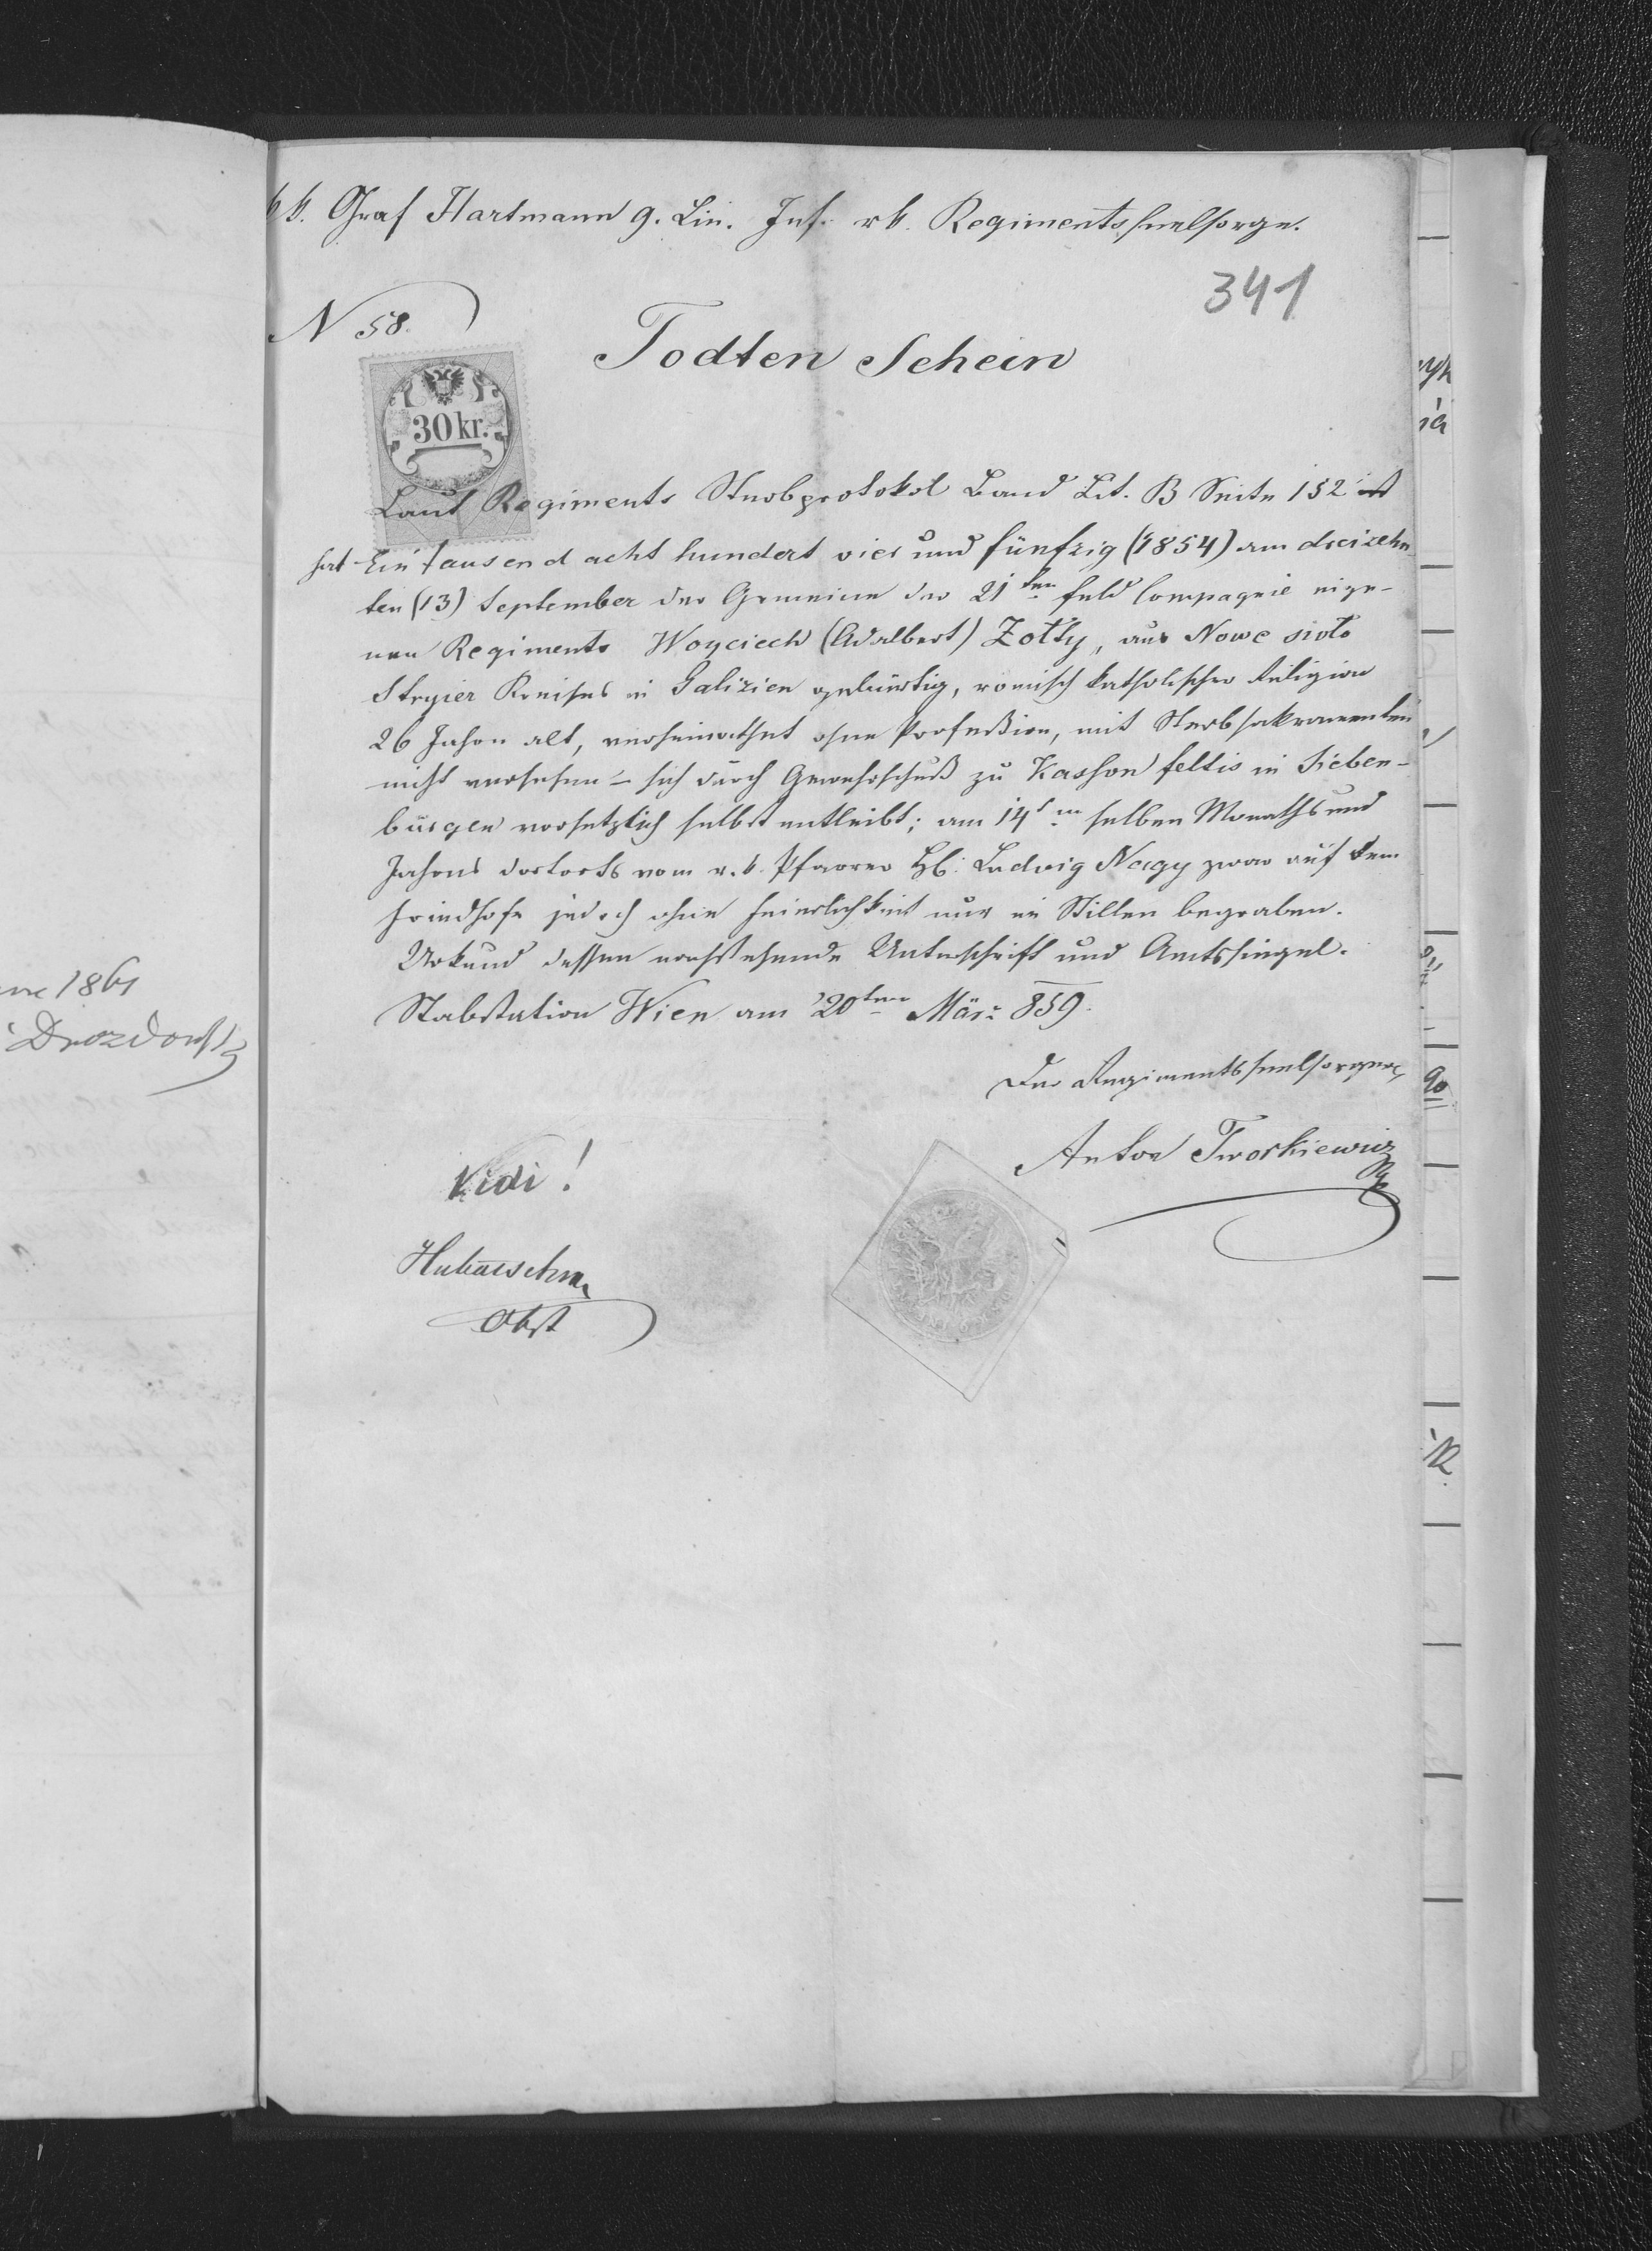 k k. Graf Hartmann 9. Lin. Inf. rk. Regimentsseelsorge.
341
N 58.
Todten Schein
30 kr.
Laut Regiments Sterbprotokol Band Lit. B Seite 152 ist
hat Ein tausend acht hundert vier und fünfzig (1854) am dreizehn-
ten (13) September der Gemeine der 21ten feld Compagnie eige-
nen Regiments Woyciech (Adalbert) Zołty, aus Nowe sioło
Stryier Kreises in Galizien gebürtig, römisch katholischer Religion
26 Jahre alt, verheirathet ohne Profeßion, mit Sterbsakramenten
nicht versehen – sich durch Gewehrschuß zu Kasson feltis in Sieben-
bürgen vorsetzlich selbst entleibt; am 14ten selben Monaths und
Jahres dortorts vom r. k. Pfarrer H: Ludwig Nagy zwar auf dem
Friedhofe jedoch ohne Feierlichkeit nur in Stillen begraben.
Urkund dessen nachstehende Unterschrift und Amtssiegel.
Stabstation Wien am 20ten März 859.
Der Regimentsseelsorger
Anton Tworkiewicz
Vidi!
Obst
1861
Drozdowski